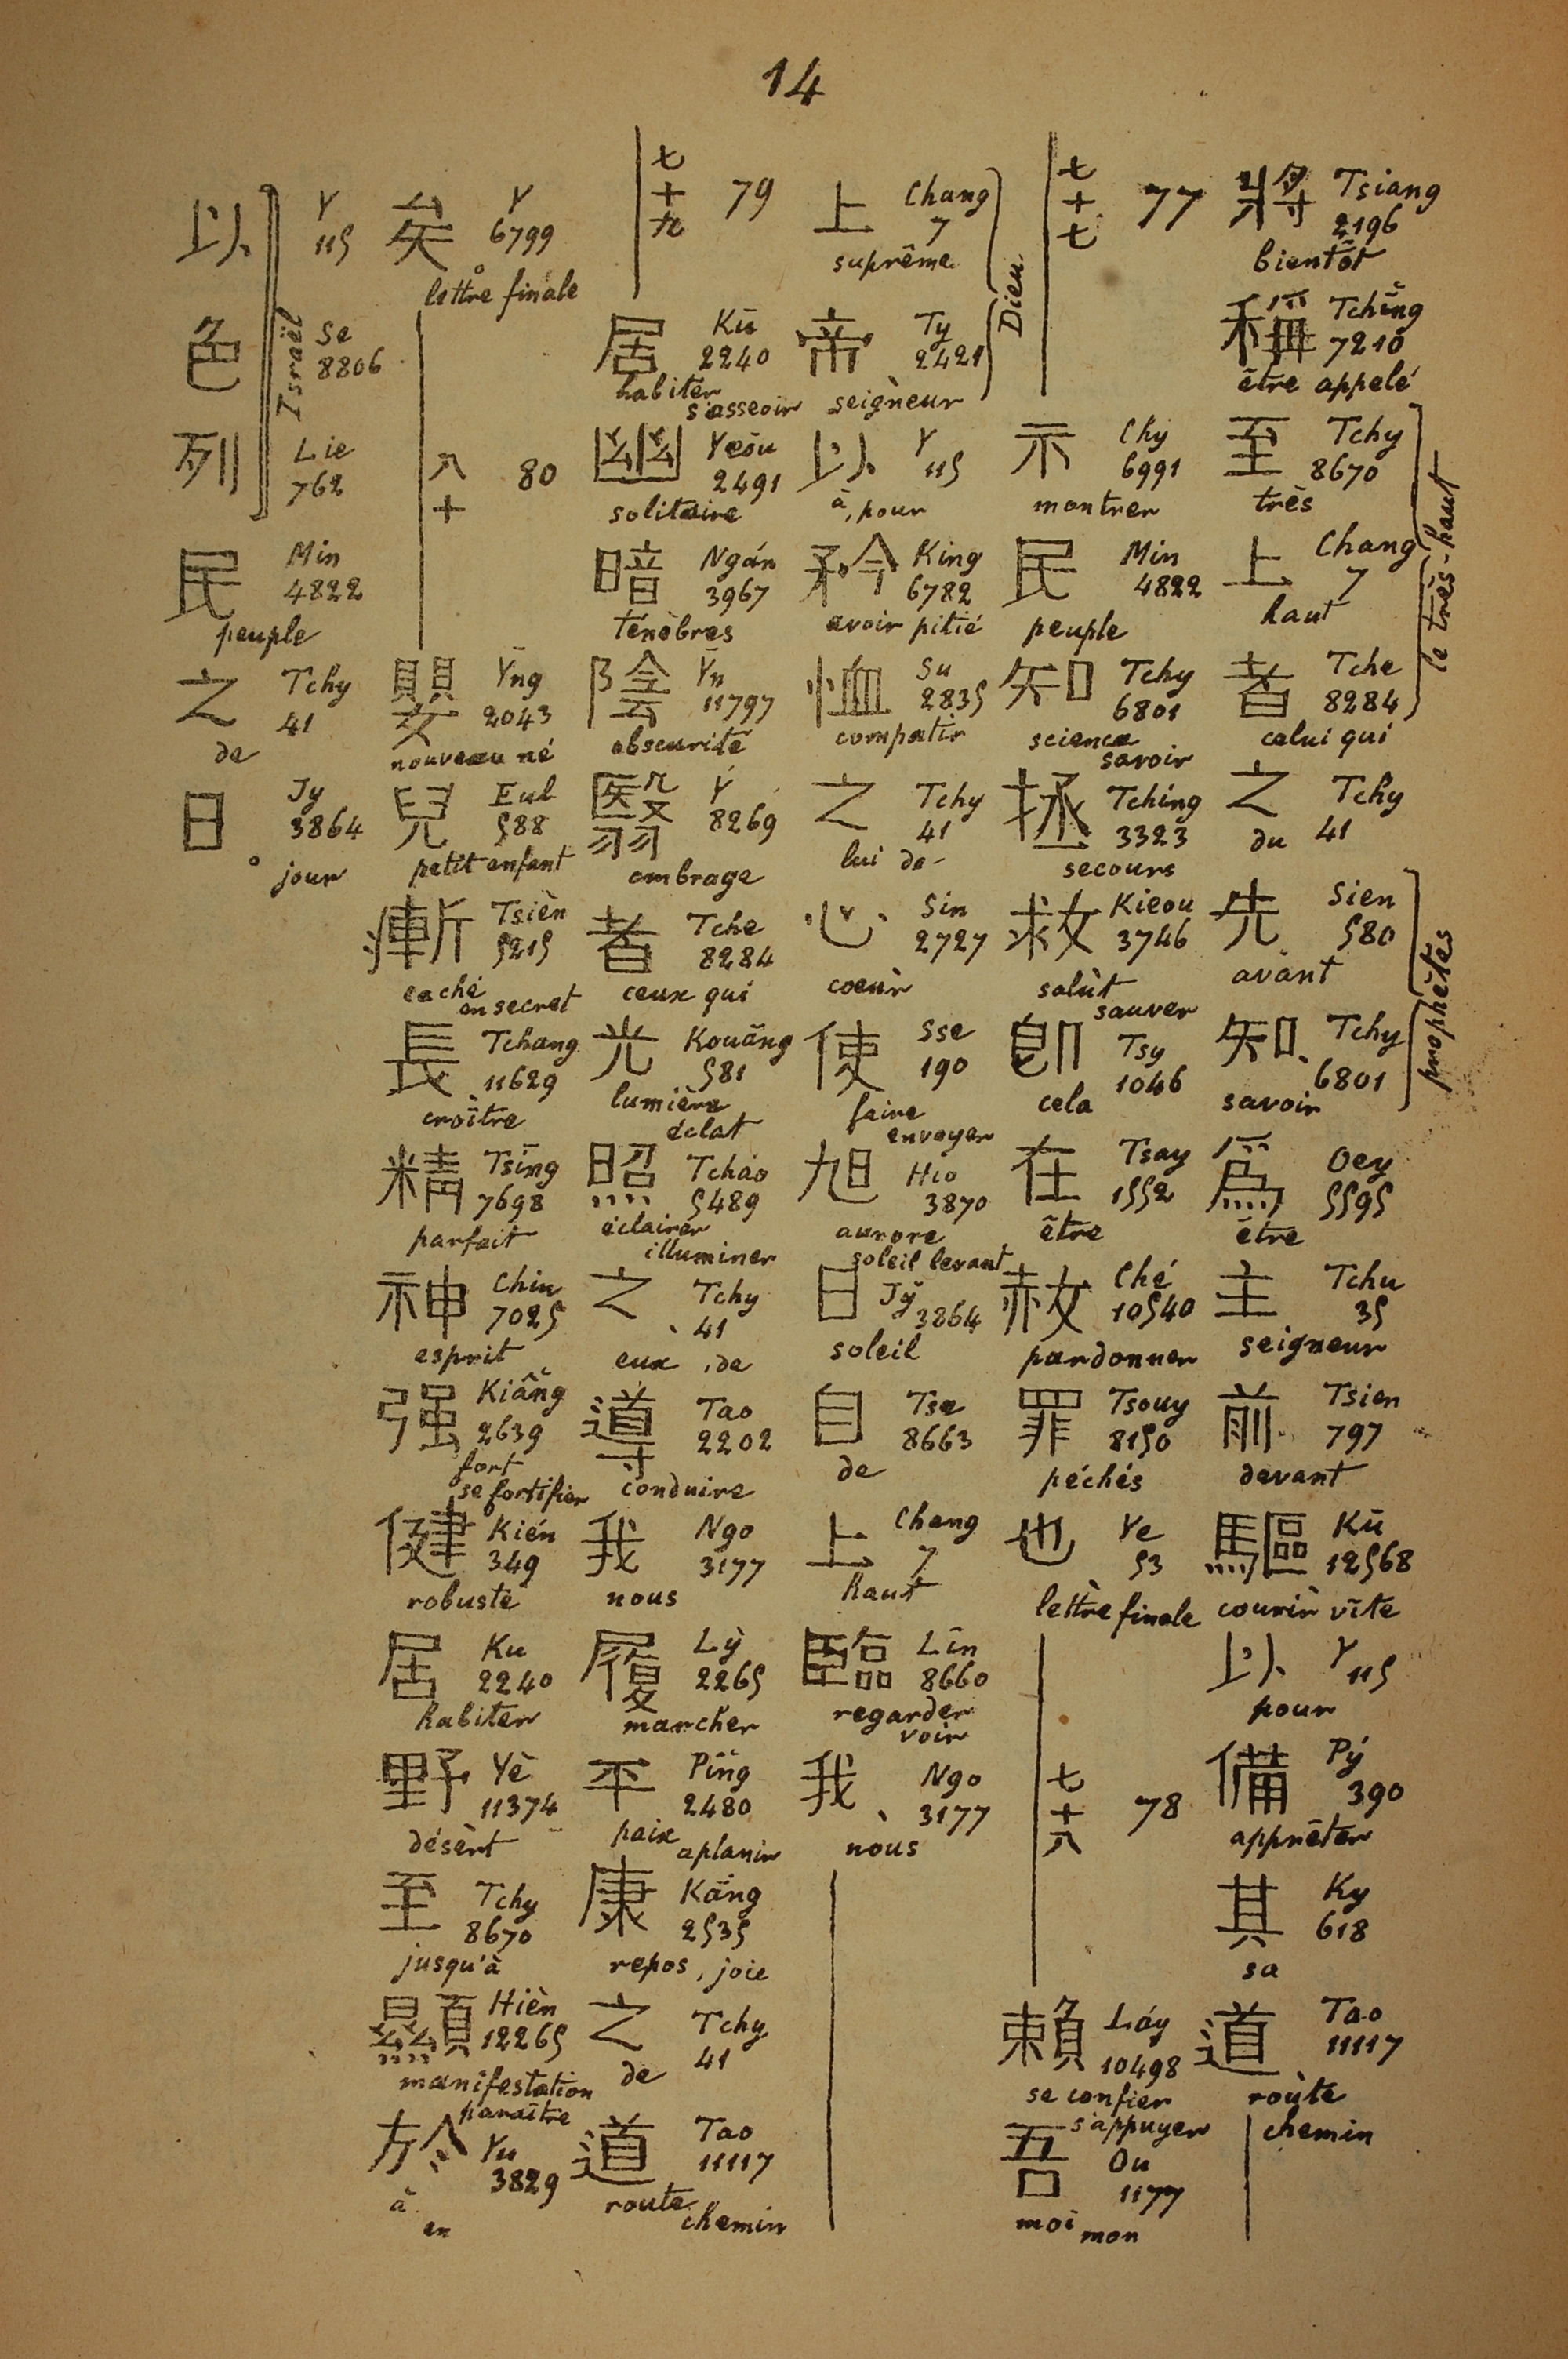 14
將 Tsiang
2196
bientôt
稱 Tchīng
7210
être appelé
至 Tchy
8670
très
上 Chang
7
haut
者 Tche
8284
celui qui
le très-haut
之 Tchy
du 41
先 Sien
580
avant
知 Tchy
6801
savoir
prophètes
爲 Oey
5595
être
主 Tchu
35
seigneur
前 Tsien
797
devant
驅 Kū
12568
courir vîte
以 Y
115
pour
備 Pý
390
apprêter
其 Ky
618
sa
道 Tao
11117
route
chemin
七十七 77
示 Chy
6991
montrer
民 Min
4822
peuple
知 Tchy
6801
science
savoir
拯 Tching
3323
secours
救 Kieou
3746
salut
sauver
卽 Tsy
1046
cela
在 Tsay
1552
être
赦 Ché
10540
pardonner
罪 Tsouy
8150
péchés
也 Ye
53
lettre finale
七十八 78
賴 Láy
10498
se confier
s'appuyer
吾 Ou
1177
moi
mon
上 Chang
7
suprême
帝 Ty
2421
seigneur
Dieu
以 Y
115
à, pour
矜 King
6782
avoir pitié
恤 Su
2835
compatir
之 Tchy
41
lui de
心 Sin
2727
coeur
使 Sse
190
faire
envoyer
旭 Hio
3870
aurore
soleil levant
日 Jy
3864
soleil
自 Tse
8663
de
上 Chang
7
haut
臨 Lîn
8660
regarder
voir
我 Ngo
3177
nous
七十九 79
居 Kū
2240
habiter
s'asseoir
幽 Yeōu
2491
solitaire
暗 Ngán
3967
ténèbres
陰 Yn
11797
obscurité
翳 Y
8269
ombrage
者 Tche
8284
ceux qui
光 Kouāng
581
lumière
éclat
照 Tcháo
5489
éclairer
illuminer
之 Tchy
41
eux, de
導 Tao
2202
conduire
我 Ngo
3177
nous
履 Lỳ
2265
marcher
平 Pîng
2480
paix
aplanir
康 Kāng
2535
repos, joie
之 Tchy
41
de
道 Tao
11117
route
chemin
矣 Y
6799
lettre finale
八十 80
嬰 Yng
2043
nouveau né
兒 Eul
588
petit enfant
漸 Tsièn
5215
caché
en secret
長 Tchang
11629
croître
精 Tsīng
7698
parfait
神 Chin
7025
esprit
强 Kiâng
2639
fort
se fortifier
健 Kién
349
robuste
居 Ku
2240
habiter
野 Yè
11374
désert
至 Tchy
8670
jusqu'à
顯 Hièn
12265
manifestation
paraître
於 Yu
3829
à
en
以 Y
115
色 Se
8806
列 Lie
762
Israël
民 Min
4822
peuple
之 Tchy
41
de
日 Jy
3864
jour